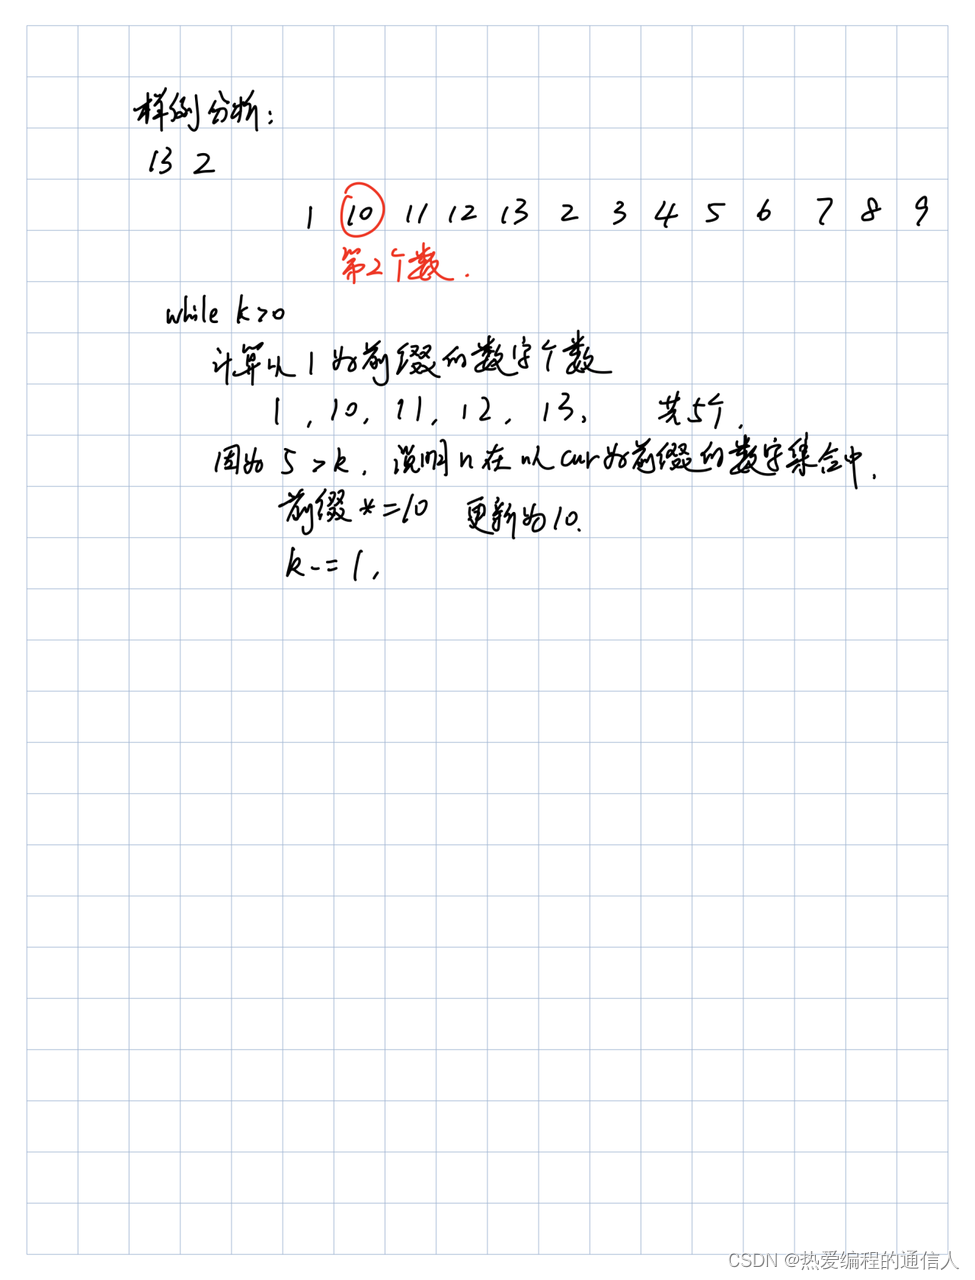 样例分析:
13 2
1 10 11 12 13 2 3 4 5 6 7 8 9
第2个数.
while k>0
计算以1为前缀的数字个数
1, 10, 11, 12, 13, 共5个.
因为5>k, 说明n在以cur为前缀的数字集合中.
前缀*=10 更新为10.
k-=1,
CSDN @热爱编程的通信人